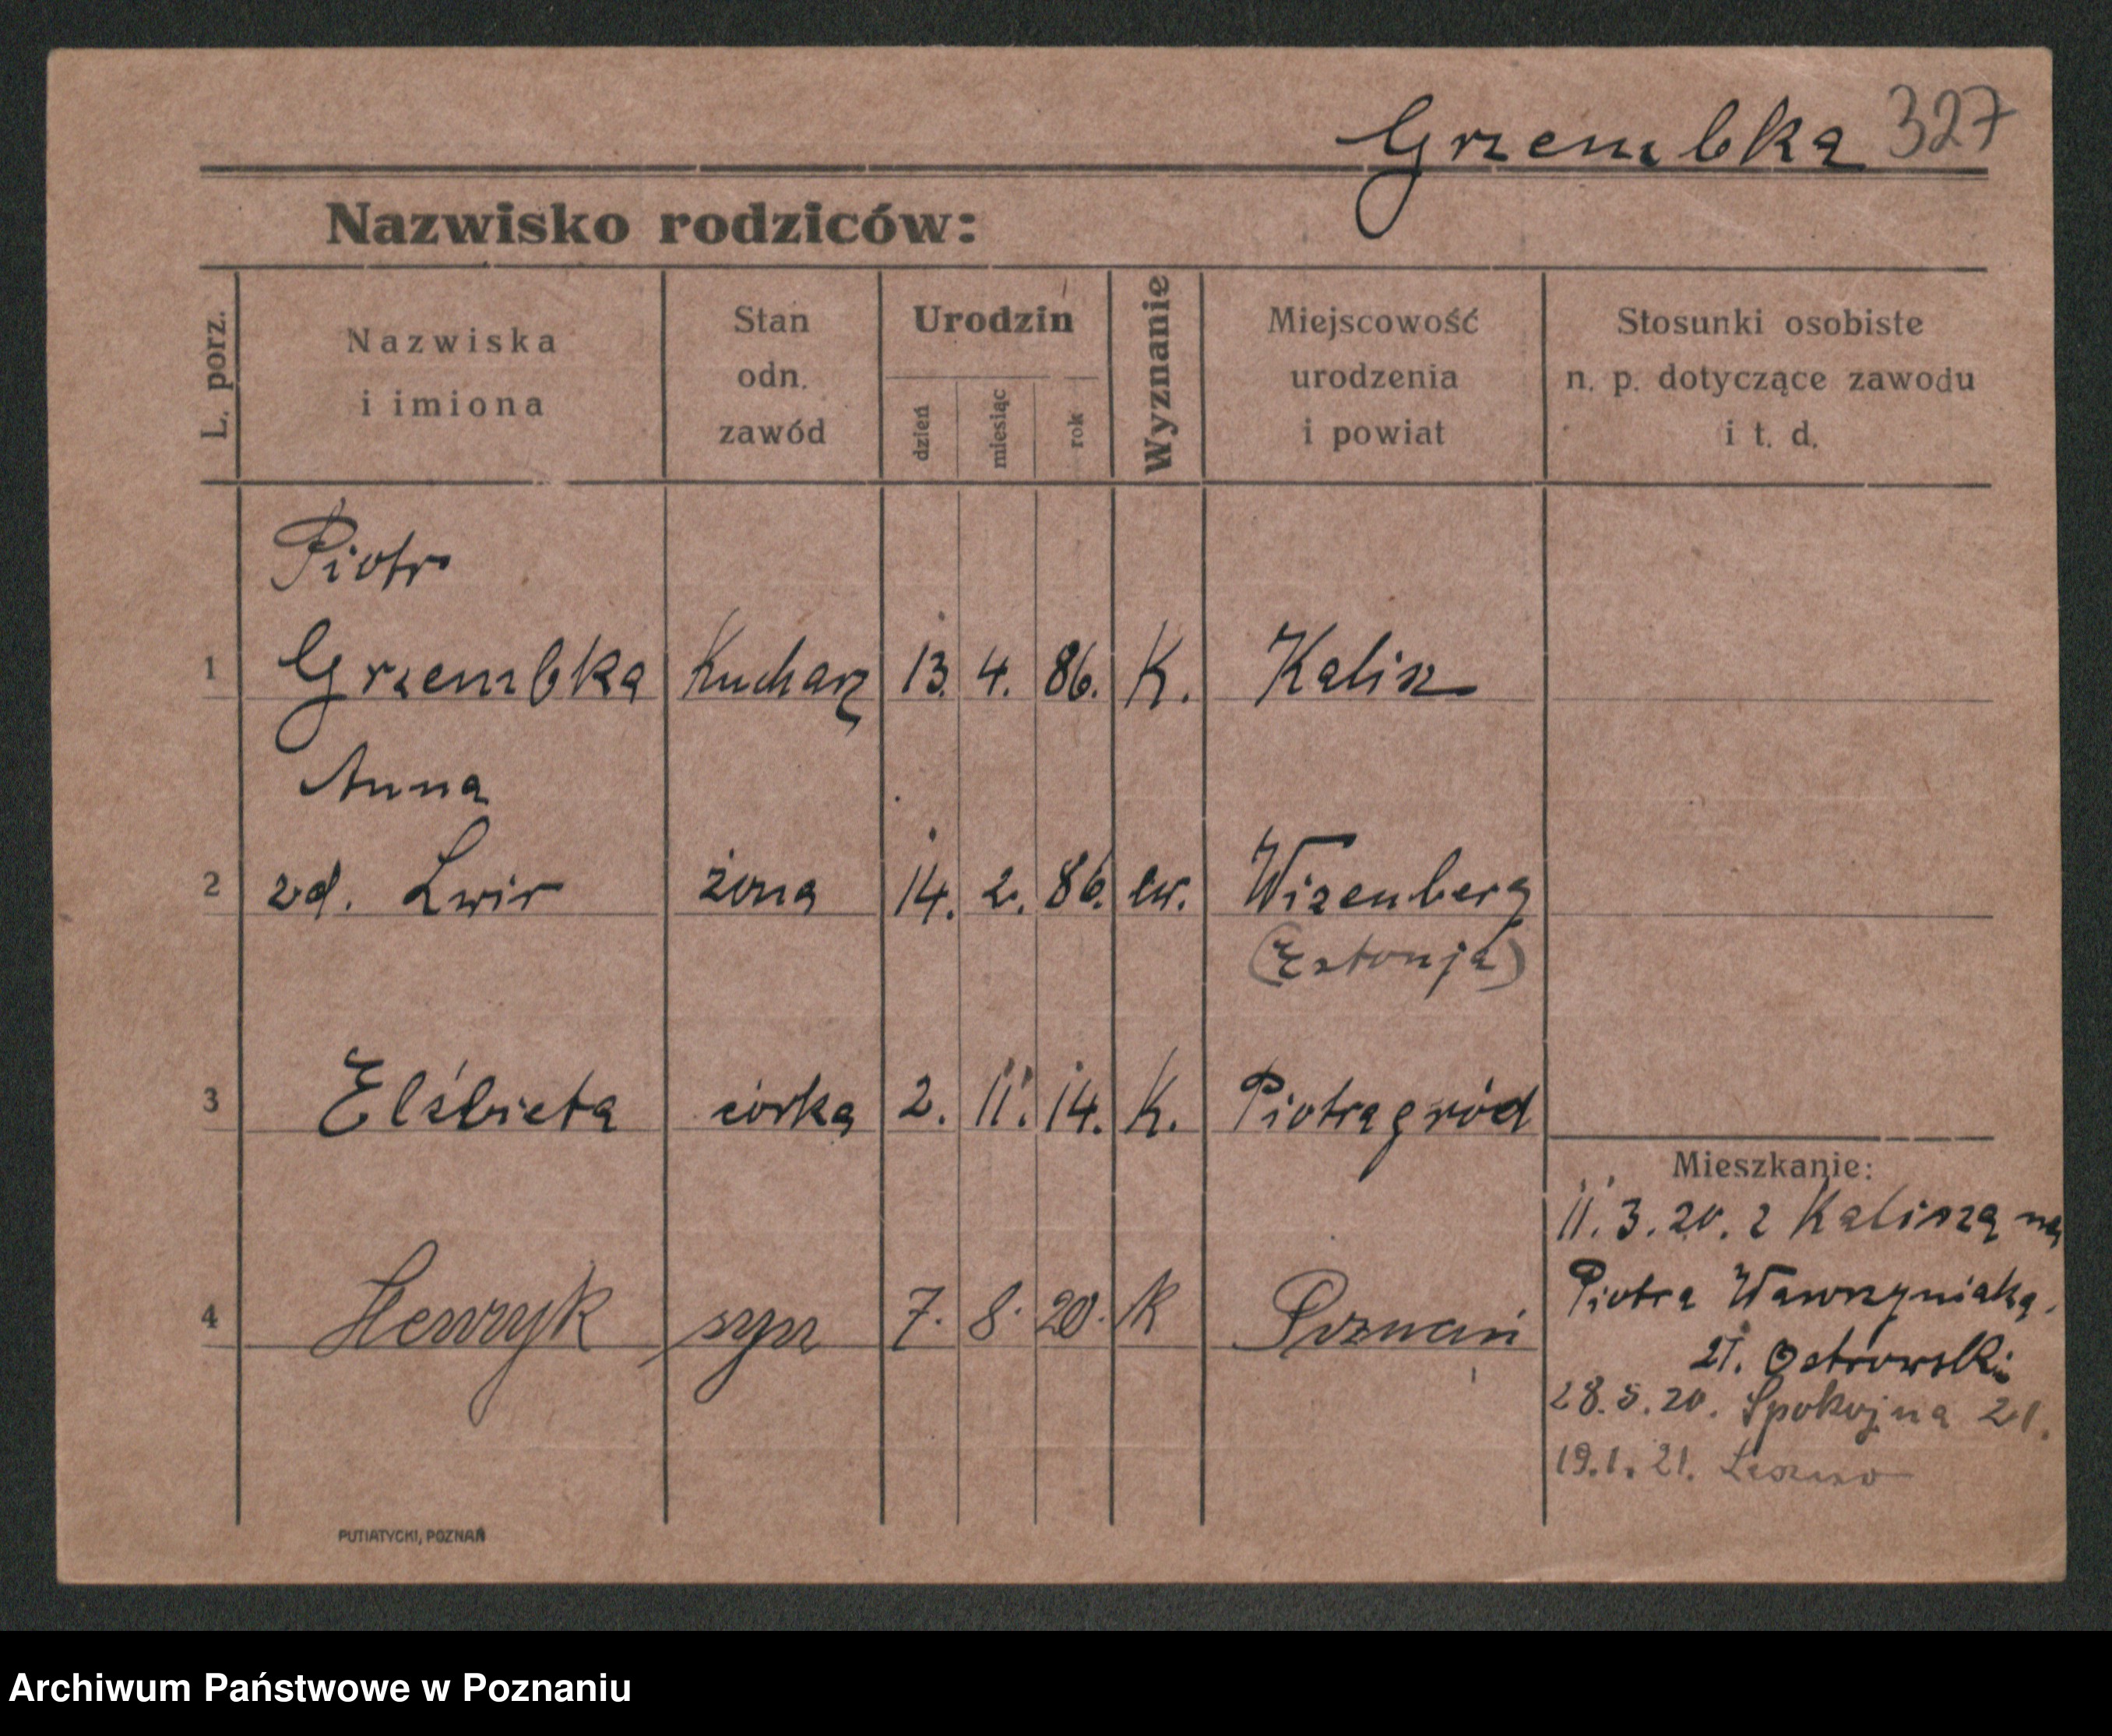 Grzembka 327
Nazwisko rodziców:
L. porz.
Nazwiska
i imiona
Stan
odn.
zawód
Urodzin
dzień miesiąc rok
Wyznanie
Miejscowość
urodzenia
i powiat
Stosunki osobiste
n. p. dotyczące zawodu
i t. d.
Piotr
1 Grzembka Kucharz 13. 4. 86. K. Kalisz
Anna
2 zd. Lwir żona 14. 2. 86. ew. Wizenberg
(Estonja)
3 Elżbieta córka 2. 11. 14. K. Piotragród
4 Henryk syn 7. 8. 20. K Poznań
Mieszkanie:
11. 3. 20. z Kalisza na
Piotra Wawrzyniaka.
21. Ostrowski
28. 5. 20. Spokojna 21.
19. 1. 21. Leszno
PUTIATYCKI, POZNAŃ
Archiwum Państwowe w Poznaniu